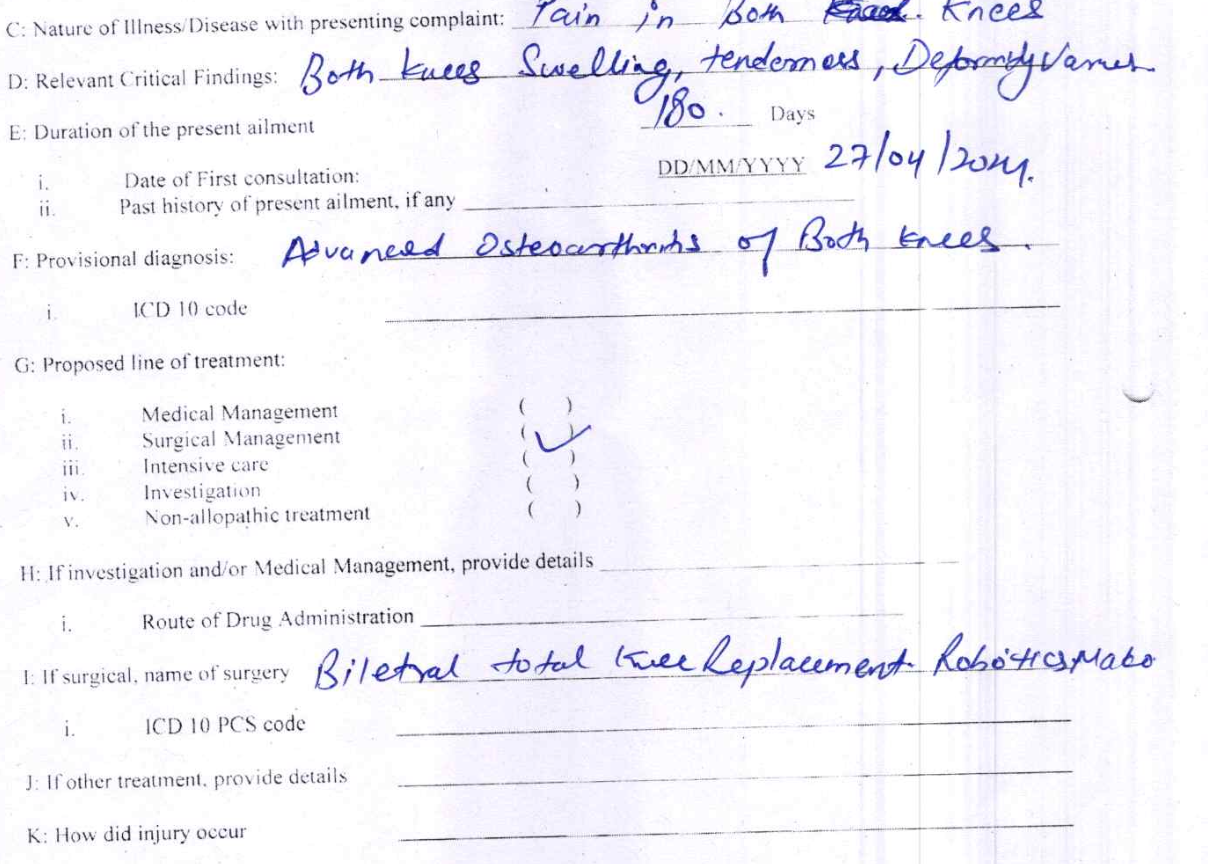 C: Nature of Illness/Disease with presenting complaint: Pain in Both Knees
D: Relevant Critical Findings: Both knees Swelling, tenderness, Deformity Varus
E: Duration of the present ailment 180. Days
i. Date of First consultation: DD/MM/YYYY 27/04/2024.
ii. Past history of present ailment, if any
F: Provisional diagnosis: Advanced Osteoarthritis of Both knees.
i. ICD 10 code
G: Proposed line of treatment:
i. Medical Management ( )
ii. Surgical Management ( ✓ )
iii. Intensive care ( )
iv. Investigation ( )
v. Non-allopathic treatment ( )
H: If investigation and/or Medical Management, provide details
i. Route of Drug Administration
I: If surgical, name of surgery Biletral total knee Replacement Robotics Mako
i. ICD 10 PCS code
J: If other treatment, provide details
K: How did injury occur